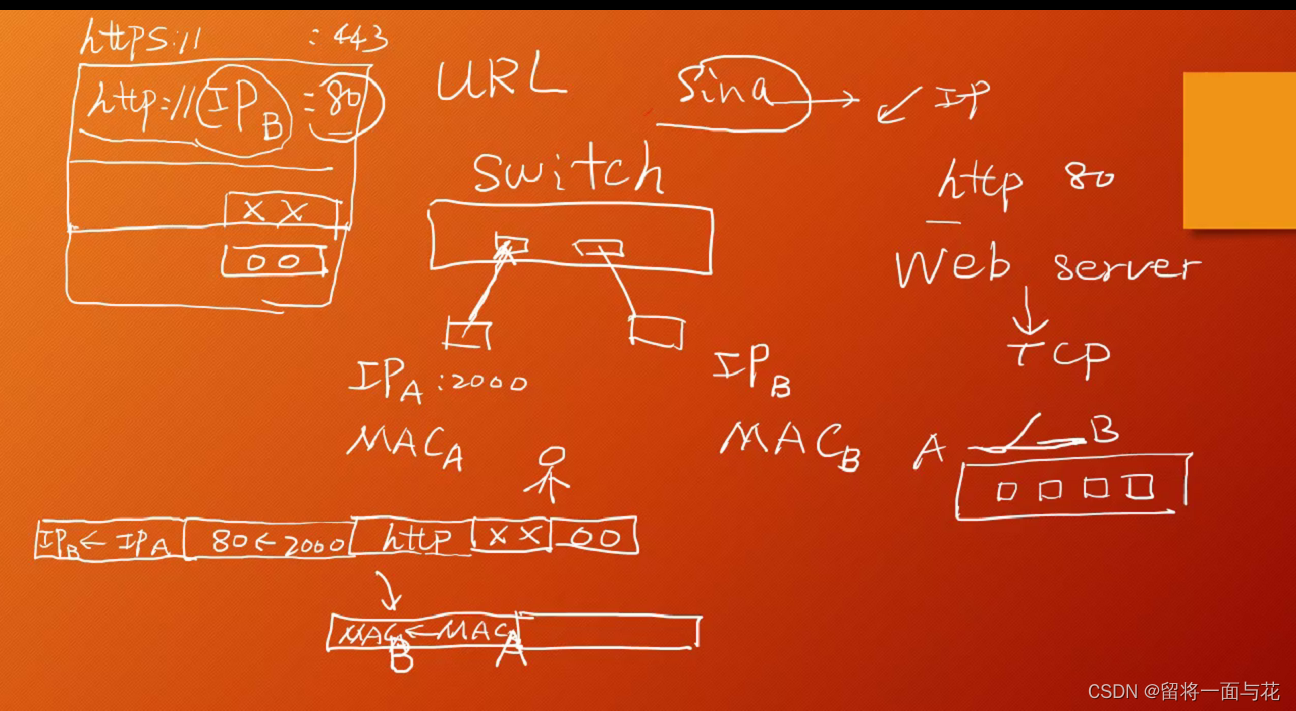 https:// :443
http://IPB:80
URL
Sina → ↙ IP
switch
http 80
XX
OO
Web server
↓
TCP
IPA:2000
IPB
MACA
MACB
A B
IPB←IPA 80←2000 http XX OO
MACB←MACA
CSDN @留将一面与花